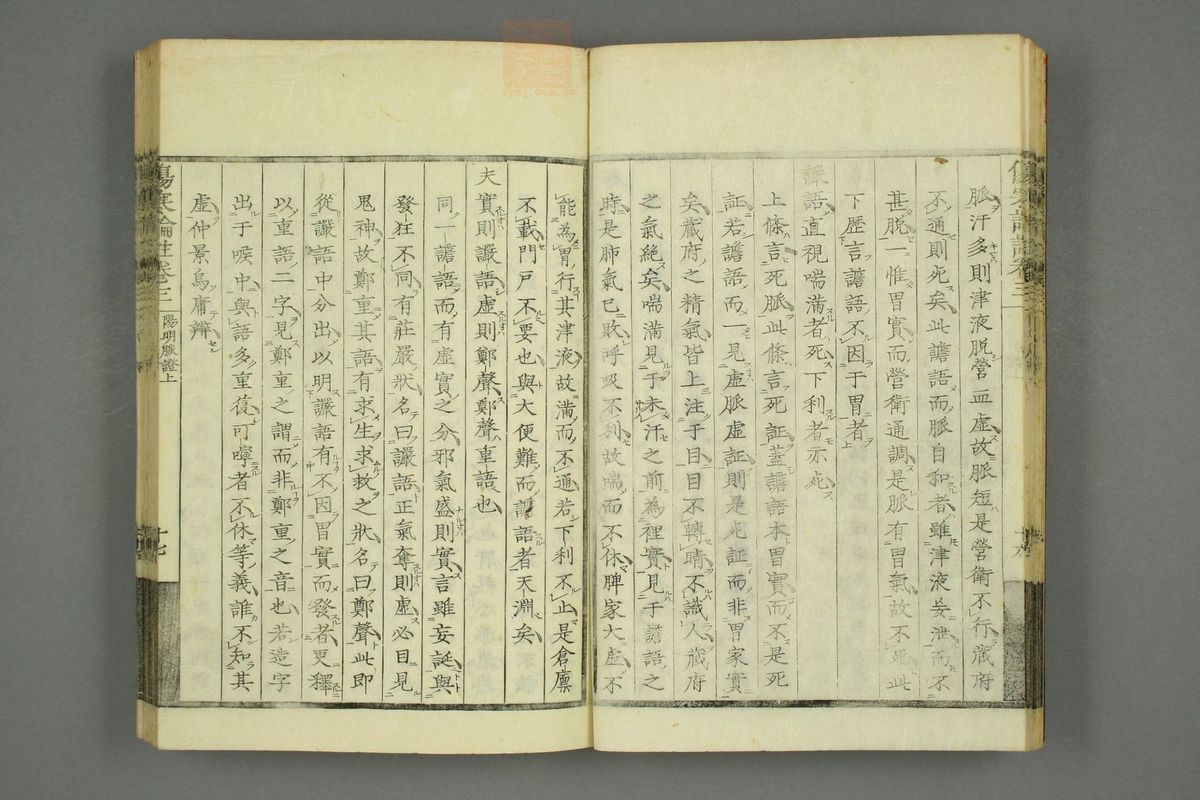 脈汗多則津液脫營血虛故脈短是營衛不行藏府
不通則死矣此譫語而脈自和者雖津液妄泄而不
甚脫一惟胃實而營衛通調是脈有胃氣故不死此
下歷言譫語不因于胃者
譫語直視喘滿者死下利者亦死
上條言死脈此條言死証蓋譫語本胃實而不是死
証若譫語而一見虛脈虛証則是死証而非胃家實
矣藏府之精氣皆上注于目目不轉睛不識人藏府
之氣絕矣喘滿見于未汗之前為裡實見于譫語之
時是肺氣已敗呼吸不利故喘而不休脾家大虛不
能為胃行其津液故滿而不通若下利不止是倉廩
不藏門戶不要也與大便難而譫語者天淵矣
夫實則譫語虛則鄭聲鄭聲重語也
同一譫語而有虛實之分邪氣盛則實言雖妄誕與
發狂不同有莊嚴狀名曰譫語正氣奪則虛必目見
鬼神故鄭重其語有求生求救之狀名曰鄭聲此即
從譫語中分出以明譫語有不因胃實而發者更釋
以重語二字見鄭重之謂而非鄭重之音也若造字
出于喉中與語多重復叮嚀者不休等義誰不知其
虛仲景烏庸辨
傷寒論註卷三 陽明脈證上 十七